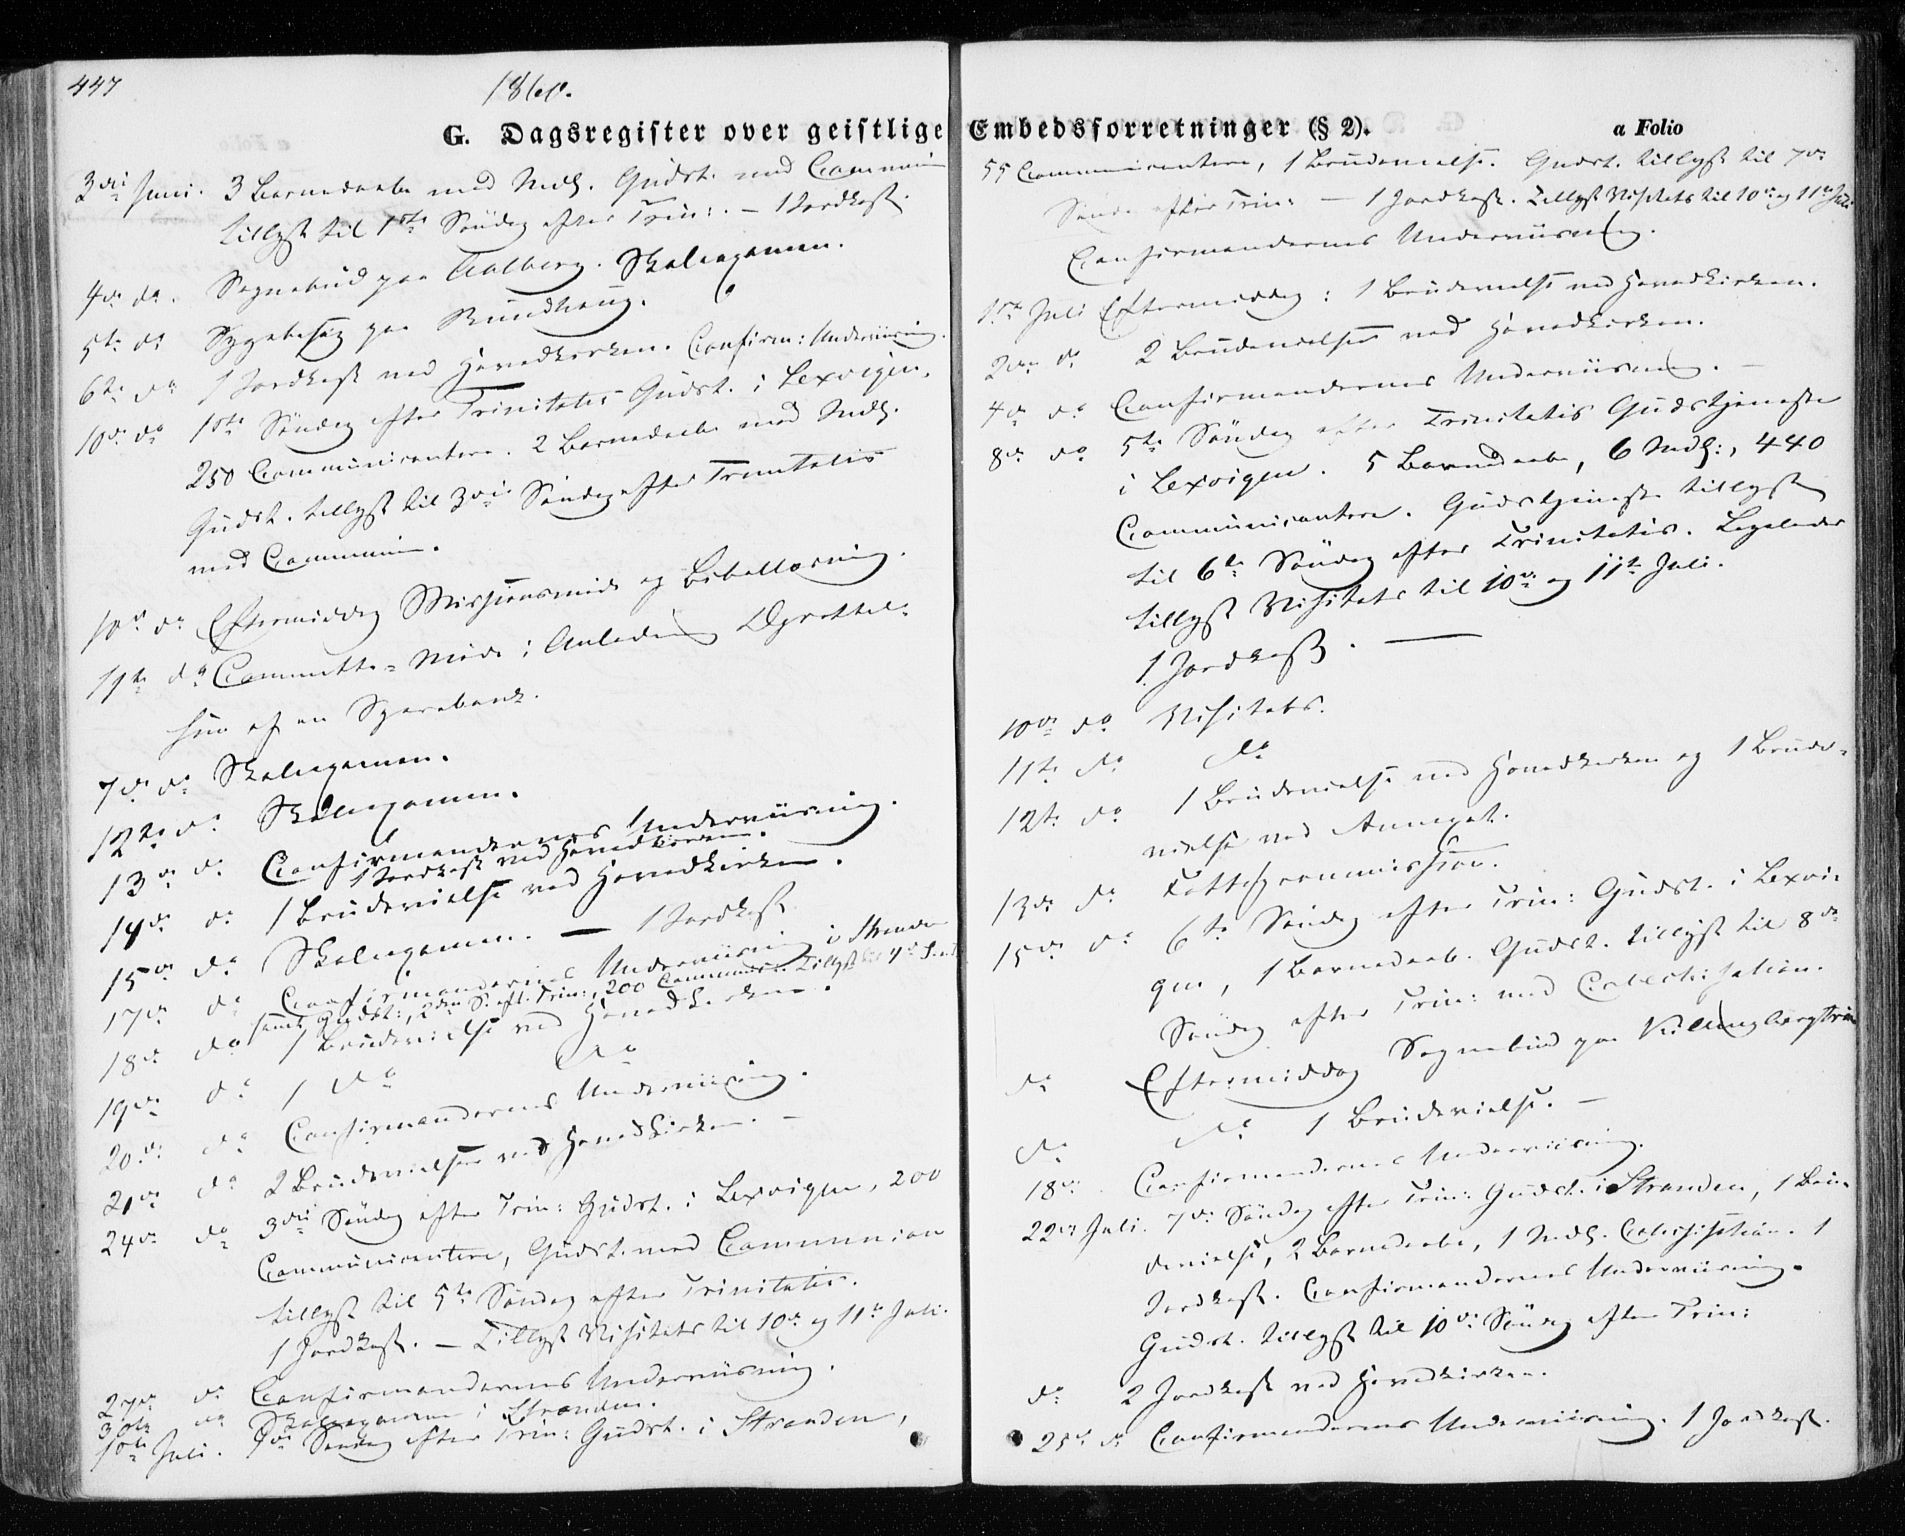 447
1860.
G. Dagsregister over geistlige Embedsforretninger (§ 2).
a Folio
3die Juni. 3 Barnedaabe med Indl. Gudst. med Commun:
tillyst til 1ste Søndag efter Trin:. – 1 Jordkast.
4de do. Sognebud paa Aalberg. Skoleexamen.
5te do Sygebesøg paa Rundhaug.
6te do 1 Jordkast ved Hovedkirken. Confirm: Underviisning.
10de do 1ste Søndag efter Trinitatis Gudst. i Lexvigen,
250 Communicantere. 2 Barnedaabe med Indl.
Gudst. tillyst til 3die Søndag efter Trinitatis
med Communion.
10de do Eftermiddag Missionsmøde og Bibellæsning.
11te do Committe-Møde i Anledning Oprettel-
sen af en Sparebank.
7de do Skoleexamen.
12te do Skoleexamen.
13de do Confirmandernes Underviisning.
1 Jordkast ved Hovedkirken.
14de do 1 Brudevielse ved Hovedkirken.
15de do Skoleexamen. — 1 Jordkast
17de do Confirmandernes Underviisning i Stranden
samt Gudst:, 2den S. eft. Trin:, 200 Commun:. Tillyst til 4de S. eft.
18de do 1 Brudevielse ved Hovedkirken.
19de do 1 do do
20de do Confirmandernes Underviisning.
21de do 2 Brudevielser ved Hovedkirken. –
24de do 3die Søndag efter Trin: Gudst. i Lexvigen, 200
Communicantere, Gudst. med Communion
tillyst til 5te Søndag efter Trinitatis.
1 Jordkast. – Tillyst Visitats til 10de og 11te Juli.
27de do Confirmandernes Underviisning.
30te do Skoleexamen i Stranden.
1ste Juli. 4de Søndag efter Trin: Gudst. i Stranden,
55 Communicantere, 1 Brudevielse. Gudst. tillyst til 7de
Sønd. efter Trin: — 1 Jordkast. Tillyst Visitats til 10de og 11te Juli
Confirmandernes Underviisning.
1ste Juli Eftermiddag: 1 Brudevielse ved Hovedkirken.
2den do 2 Brudevielser ved Hovedkirken.
4de do Confirmandernes Underviisning. –
8de do 5te Søndag efter Trinitatis Gudstjeneste
i Lexvigen. 5 Barnedaabe, 6 Indl:, 440
Communicantere. Gudstjeneste tillyst
til 6te Søndag efter Trinitatis. Ligeledes
tillyst Visitats til 10de og 11te Juli.
1 Jordkast. —
10de do Visitats.
11te do do
12te do 1 Brudevielse ved Hovedkirken og 1 Brude-
vielse ved Annexet.
13de do
15de do 6te Søndag efter Trin: Gudst. i Lexvi-
gen, 1 Barnedaab. Gudst. tillyst til 8de
Søndag efter Trin: med Catechisation.
do Eftermiddag Sognebud paa
do do 1 Brudevielse. –
18de Confirmandernes Underviisning.
22de Juli. 7de Søndag efter Trin: Gudst. i Stranden, 1 Bru-
devielse, 2 Barnedaabe, 1 Indl. Catechisation. 1
Jordkast. Confirmandernes Underviisning.
Gudst. tillyst til 10de Søndag efter Trin:
do 2 Jordkast ved Hovedkirken.
25de do Confirmandernes Underviisning. 1 Jordkast.